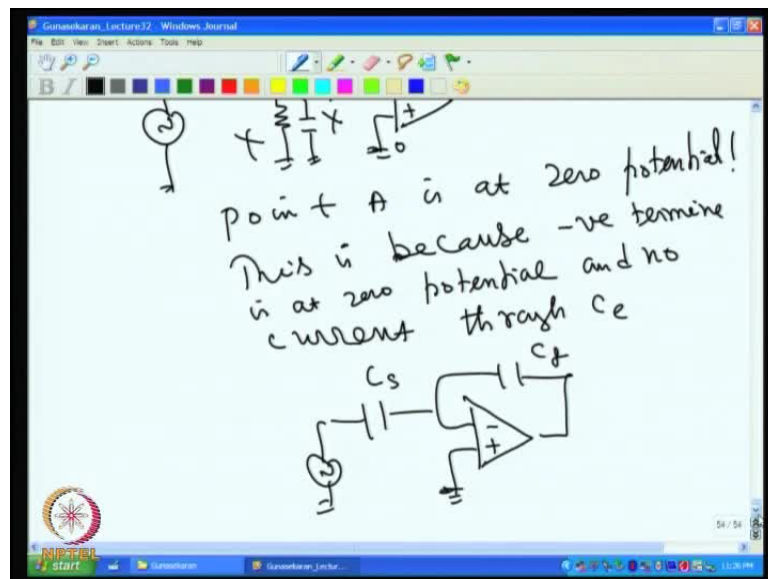 Gunasekaran_Lecture32 - Windows Journal
File Edit View Insert Actions Tools Help
B I
+
o
point A is at zero potential!
This is because -ve termine
is at zero potential and no
current through Ce
Cs
Cf
-
+
54 / 54
NPTEL
start
Gunasekaran
Gunasekaran_Lectur...
11:26 PM